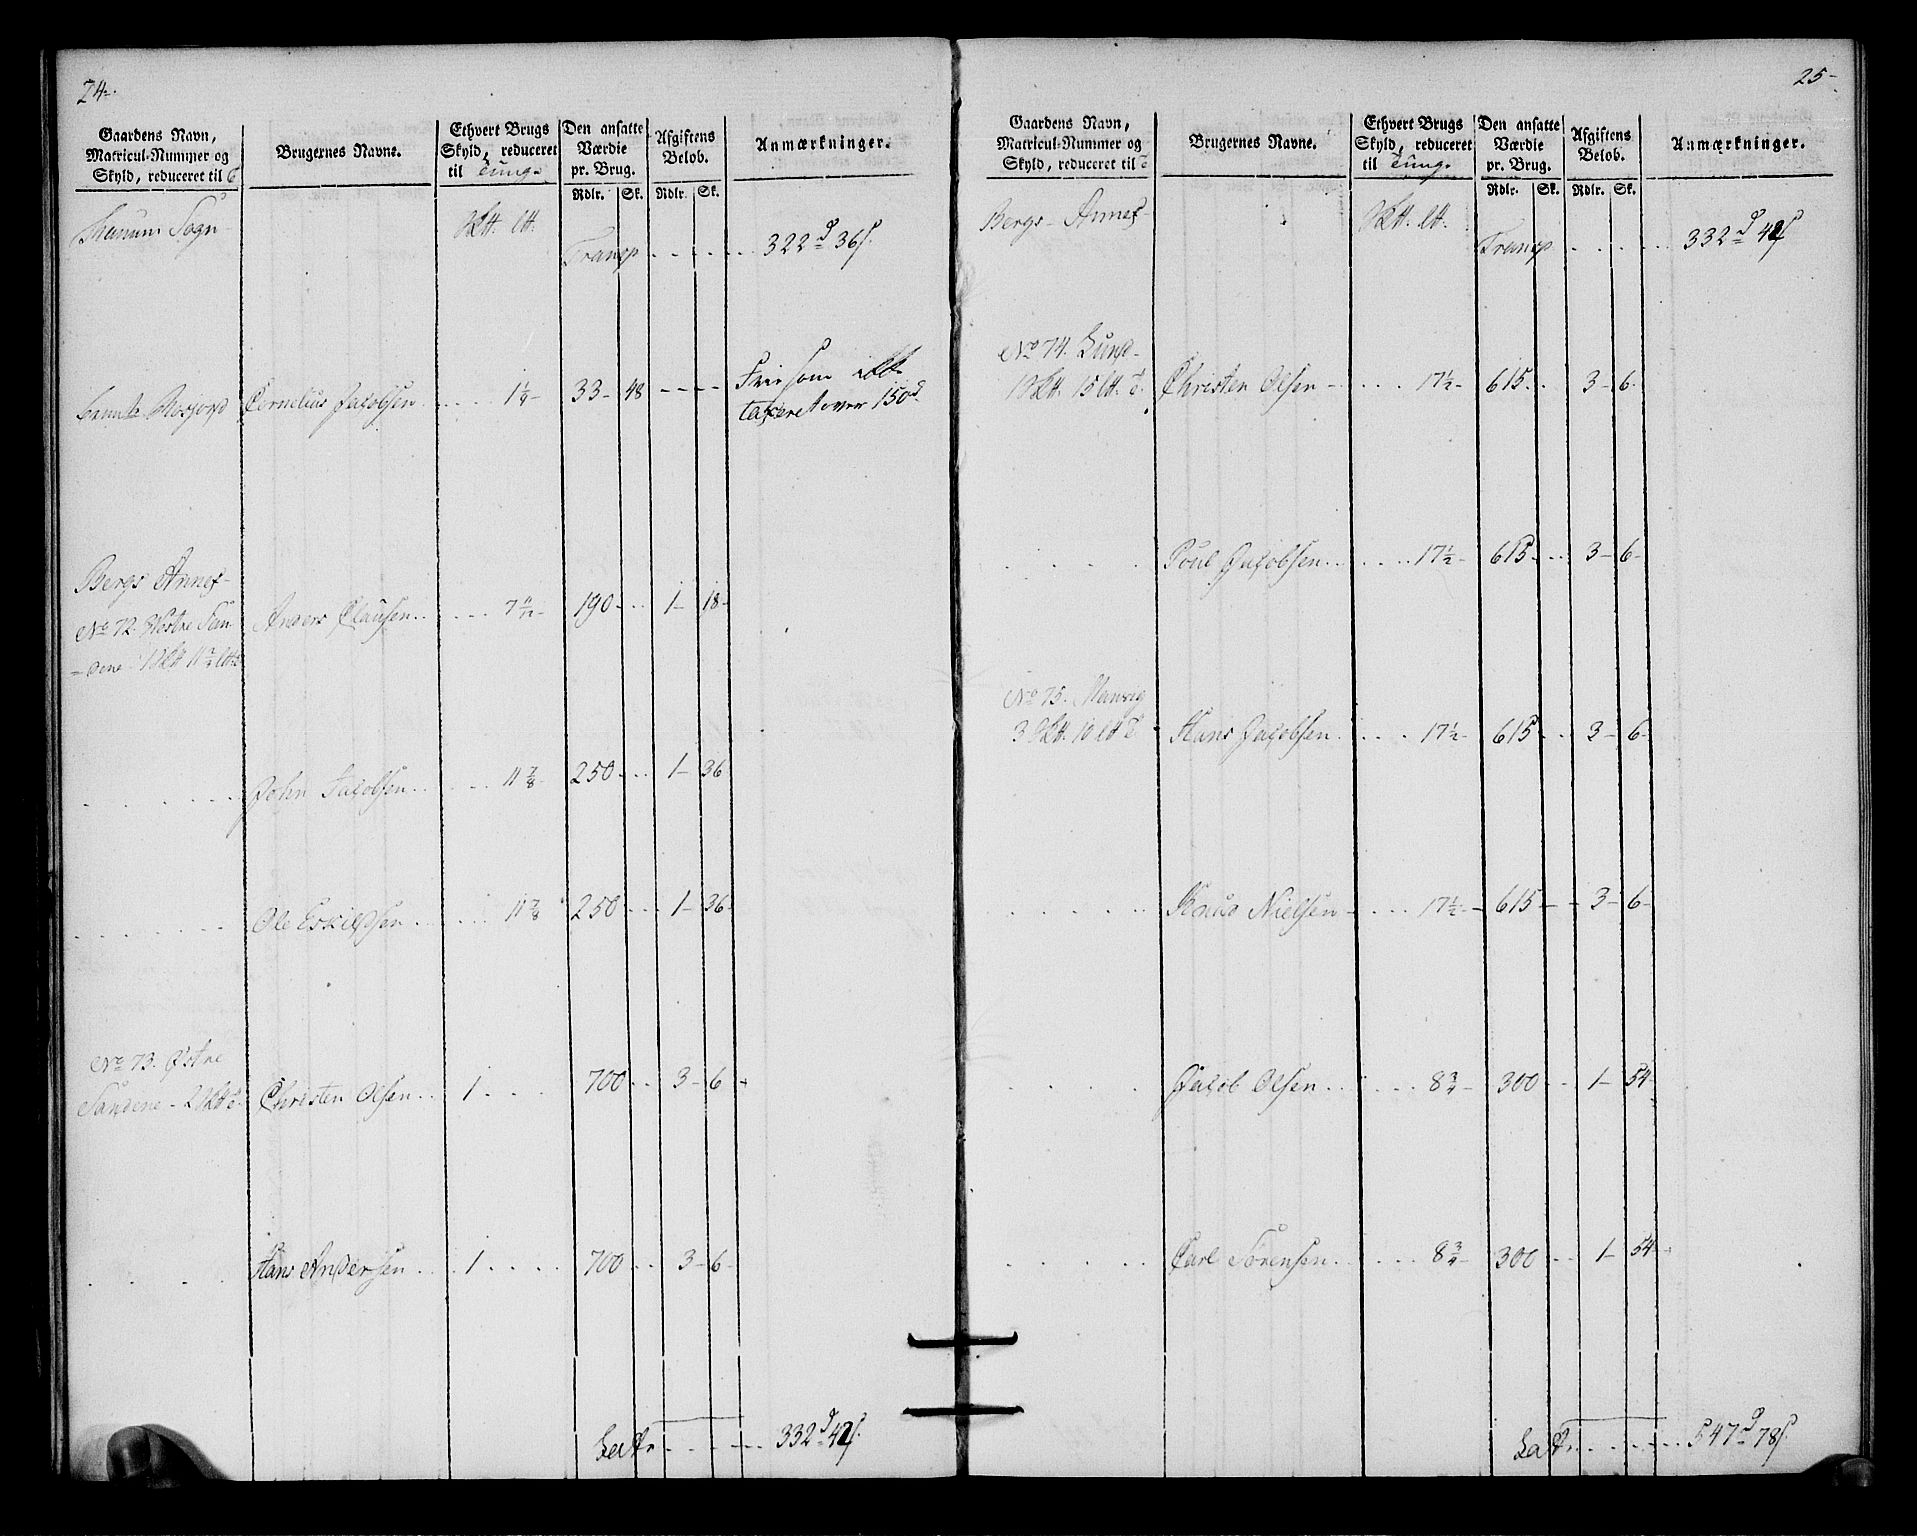 24.
Gaardens Navn,
Matricul-Nummer og
Skyld, reduceret til
Brugernes Navne.
Ethvert Brugs
Skyld, reduceret
til Tunge
Den ansatte
Værdie
pr. Brug.
Rdlr. Sk.
Afgiftens
Beløb.
Rdlr. Sk.
Anmærkninger.
Sogn
Transp . . . . . 322 d 36 s.
Cornelius Jacobsen . . . . 1 1/4 - 33 - 48 - - - - Fri som ikke
taxeret over 150 d.
Bergs Annex
No 72. Westre San-
-dene Anders Clausen . . . . 7 11/12 - 190 - . . 1 - 18 -
John Jacobsen . . . . 11 7/8 - 250 . . . 1 - 36
Ole Eskildsen . . . . 11 7/8 250 . . . 1 - 36 -
No 73. Østre
Sandene - Christen Olsen . . 1 . . . . 700 . . 3 - 6 -
Hans Andersen . . 1 . . . . 700 . . 3 - 6 -
Latr . . . . . 332 d 42 s.
25-
Gaardens Navn,
Matricul-Nummer og
Skyld, reduceret til
Brugernes Navne.
Ethvert Brugs
Skyld, reduceret
til Tunge
Den ansatte
Værdie
pr. Brug.
Rdlr. Sk.
Afgiftens
Beløb.
Rdlr. Sk.
Anmærkninger.
Bergs - Annex -
Transp . . . . . 332 d 42 s
No 74. Lund -
Christen Olsen - . . . 17 1/2 - 615 . . 3 - 6 -
Poul Jacobsen . . . . . 17 1/2 - 615 - . . 3 - 6 -
No 75.
Hans Jacobsen . . . . 17 1/2 - 615 - . . 3 - 6 -
Knud Nielsen - . . . 17 1/2 - 615 - - - 3 - 6 -
Jacob Olsen . . . . . 8 3/4 - 300 . . 1 - 54 -
Carl Sørensen . . . . 8 3/4 - 300 . . 1 - 54 -
Latr . . . . . 547 d 78 s